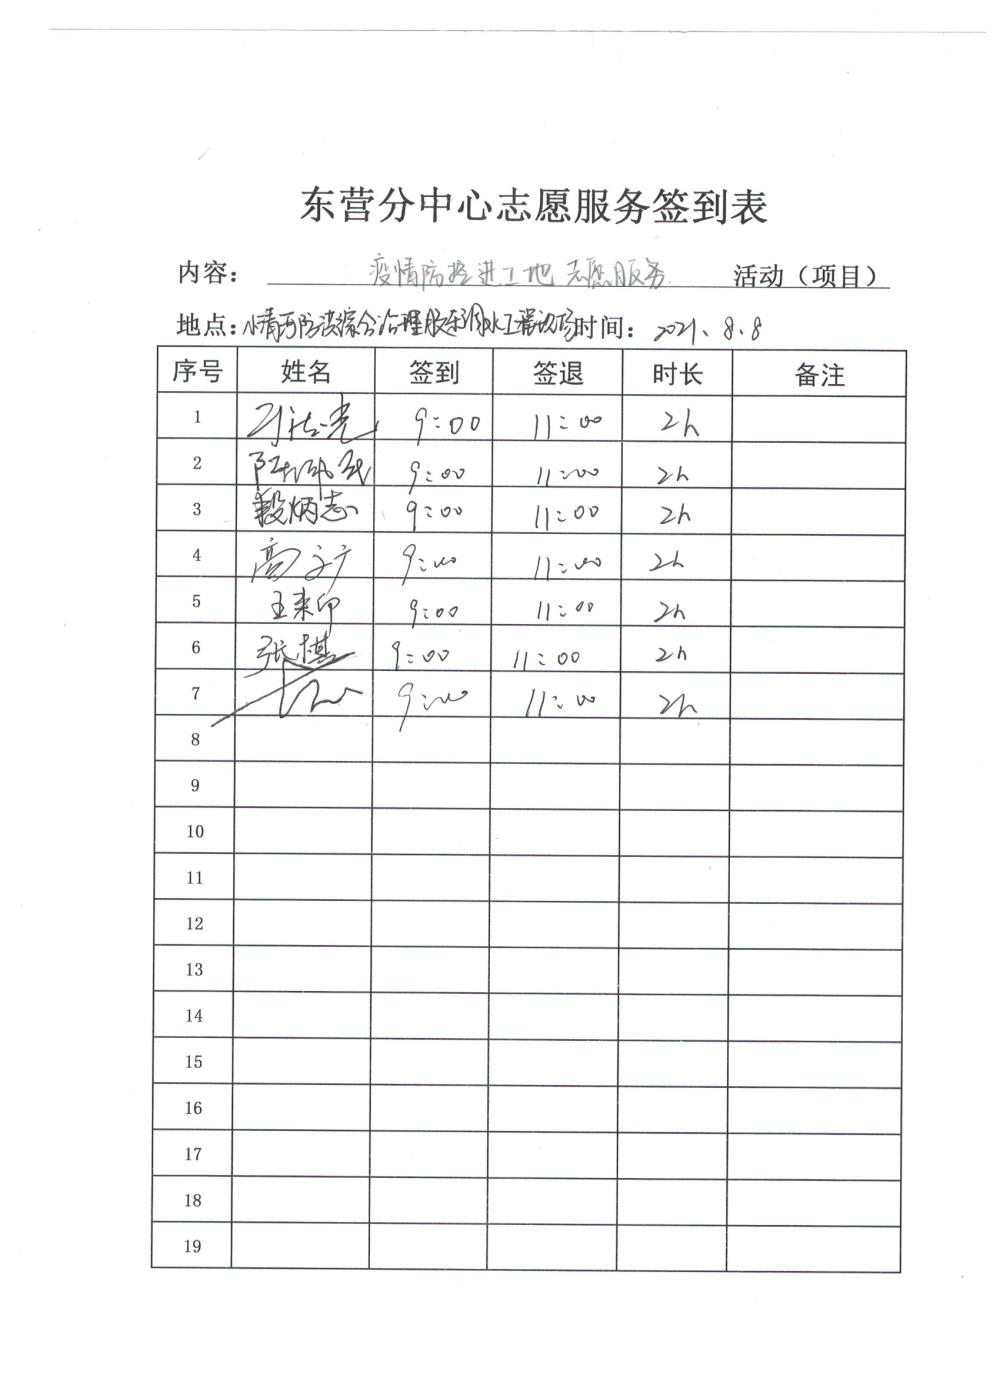 东营分中心志愿服务签到表
内容： 疫情防控进工地志愿服务 活动（项目）
地点：小清河防洪综合治理 工程 时间：2021、8、8
序号 姓名 签到 签退 时长 备注
1 9:00 11:00 2h
2 9:00 11:00 2h
3 殷炳志 9:00 11:00 2h
4 高文广 9:00 11:00 2h
5 王来印 9:00 11:00 2h
6 张棋 9:00 11:00 2h
7 9:00 11:00 2h
8
9
10
11
12
13
14
15
16
17
18
19